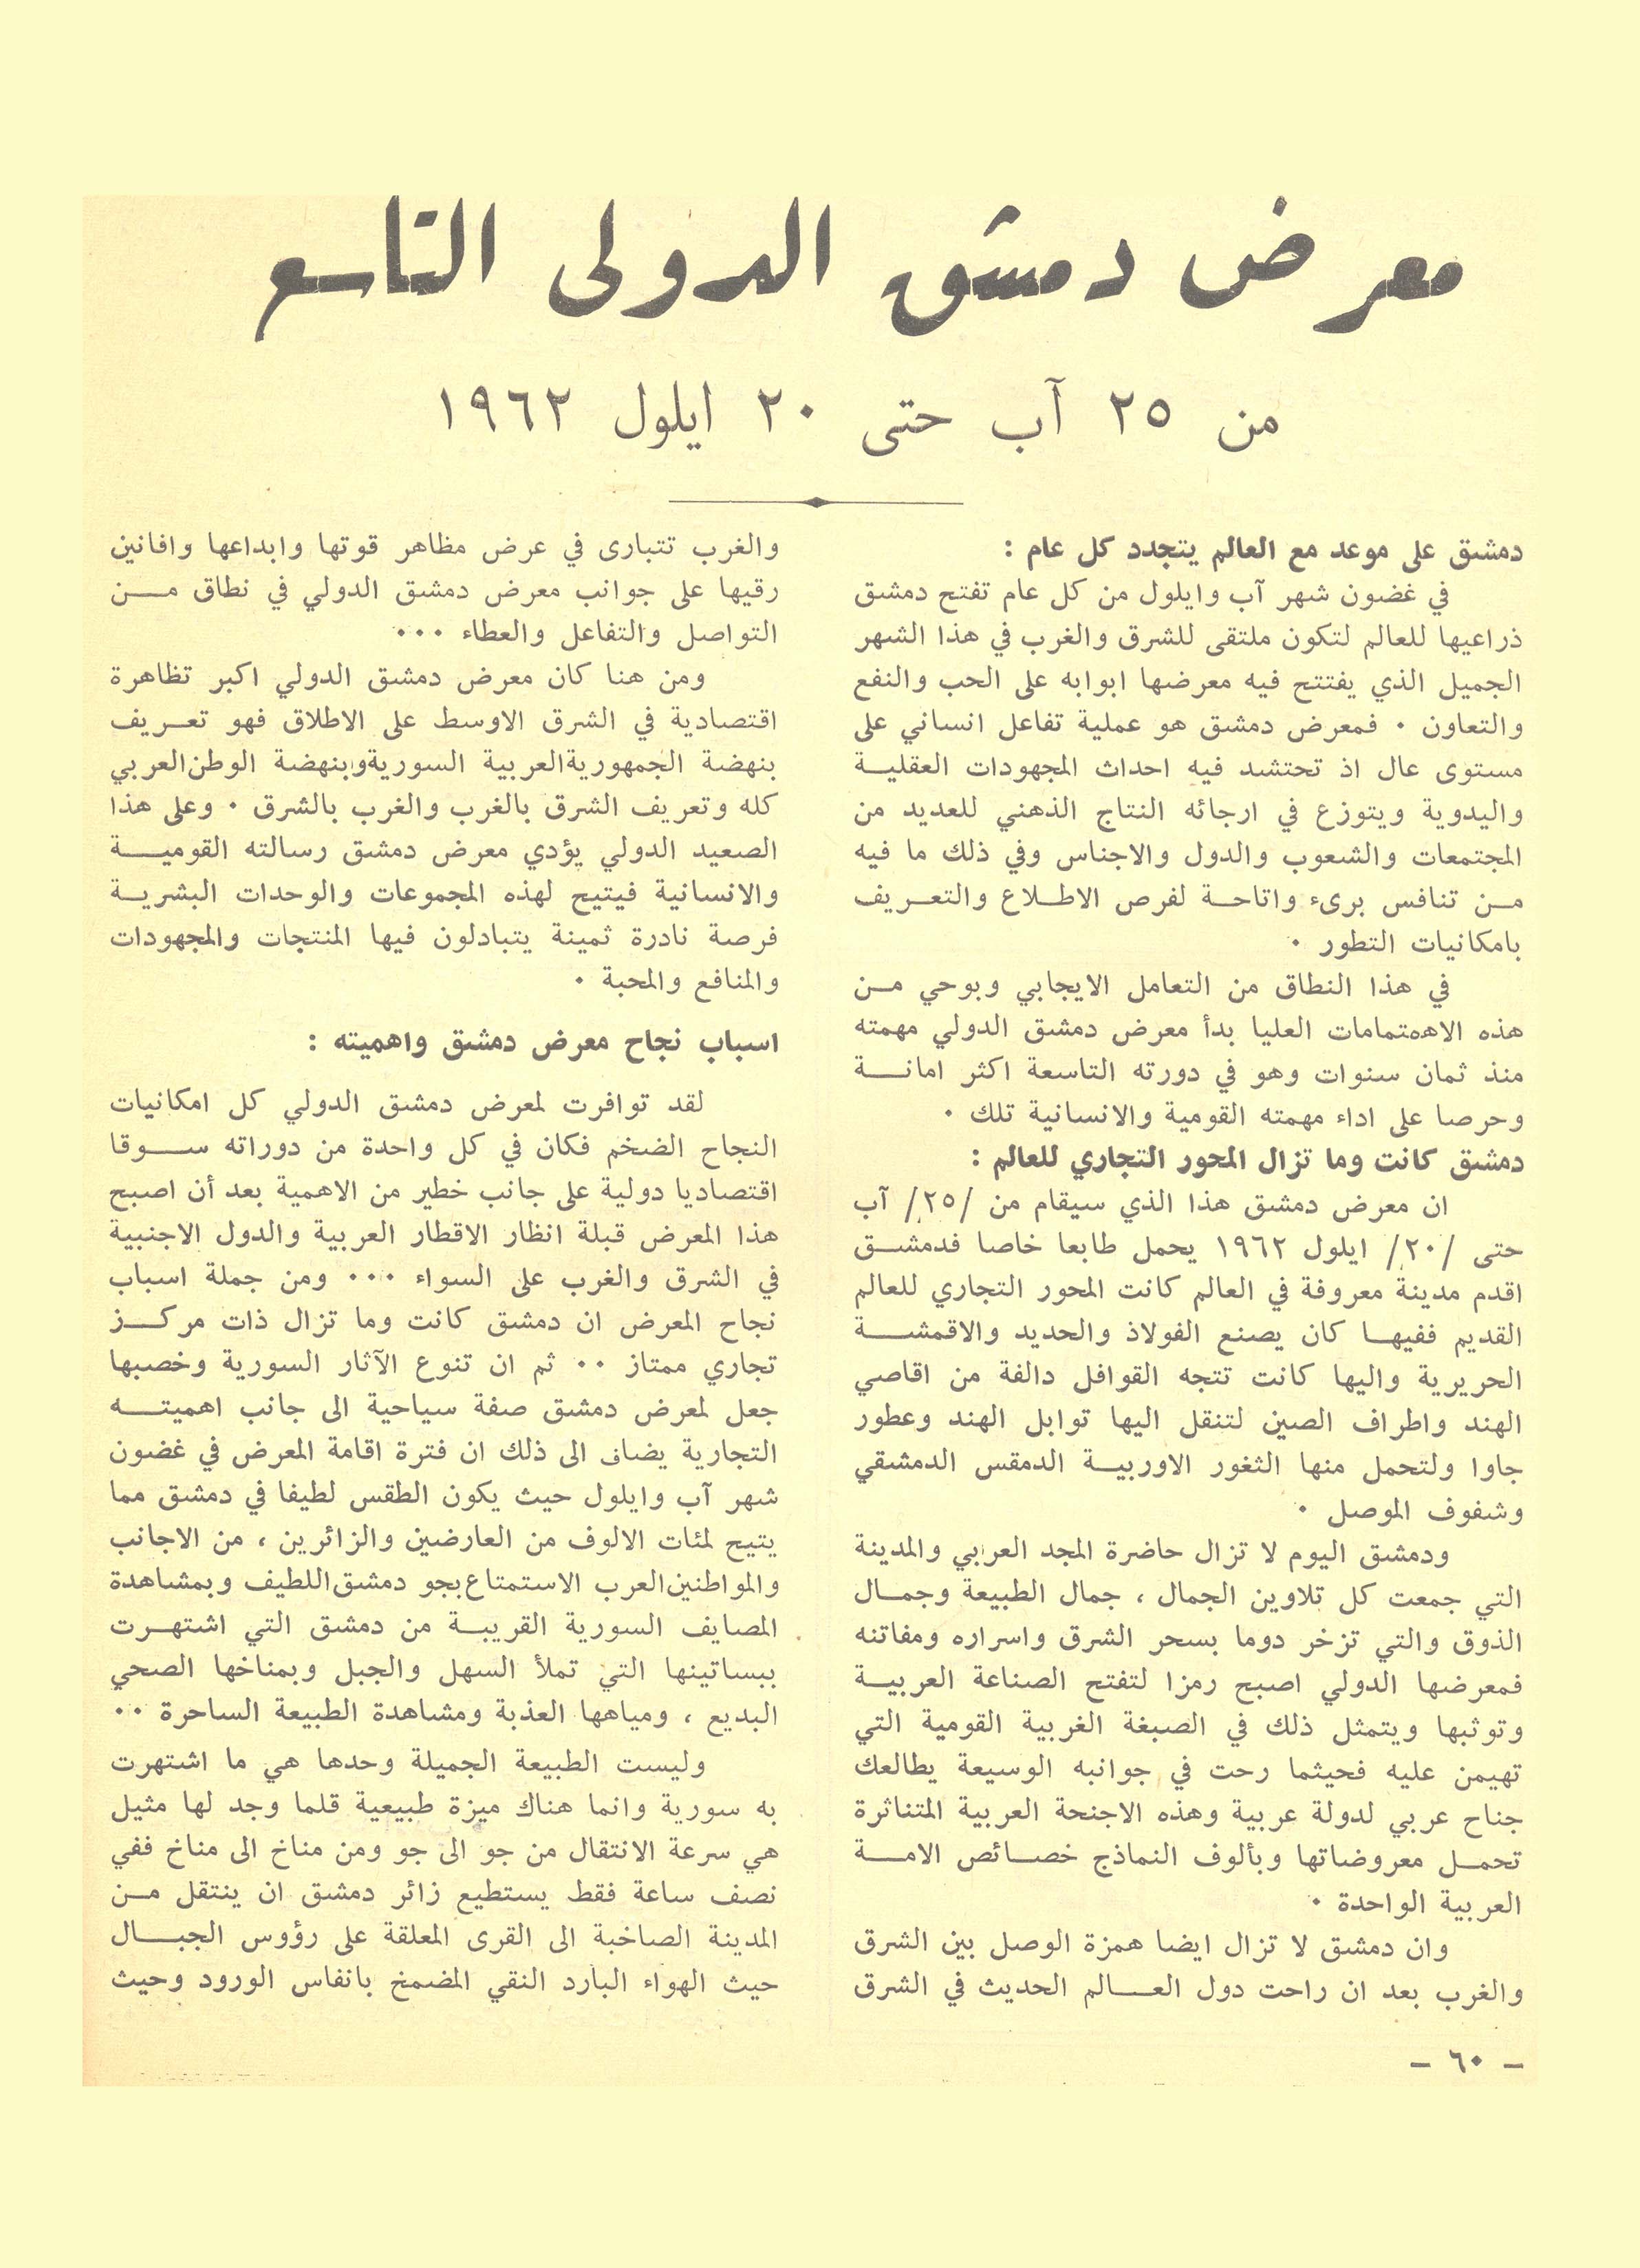 معرض دمشق الدولي التاسع
من ٢٥ آب حتى ٢٠ ايلول ١٩٦٢
دمشق على موعد مع العالم يتجدد كل عام :
في غضون شهر آب وايلول من كل عام تفتح دمشق
ذراعيها للعالم لتكون ملتقى للشرق والغرب في هذا الشهر
الجميل الذي يفتتح فيه معرضها ابوابه على الحب والنفع
والتعاون ٠ فمعرض دمشق هو عملية تفاعل انساني على
مستوى عال اذ تحتشد فيه احداث المجهودات العقلية
واليدوية ويتوزع في ارجائه النتاج الذهني للعديد من
المجتمعات والشعوب والدول والاجناس وفي ذلك ما فيه
من تنافس برىء واتاحة لفرص الاطلاع والتعريف
بامكانيات التطور ٠
في هذا النطاق من التعامل الايجابي وبوحي من
هذه الاهتمامات العليا بدأ معرض دمشق الدولي مهمته
منذ ثمان سنوات وهو في دورته التاسعة اكثر امانة
وحرصا على اداء مهمته القومية والانسانية تلك ٠
دمشق كانت وما تزال المحور التجاري للعالم :
ان معرض دمشق هذا الذي سيقام من /٢٥/ آب
حتى /٢٠/ ايلول ١٩٦٢ يحمل طابعا خاصا فدمشق
اقدم مدينة معروفة في العالم كانت المحور التجاري للعالم
القديم ففيها كان يصنع الفولاذ والحديد والاقمشة
الحريرية واليها كانت تتجه القوافل دالفة من اقاصي
الهند واطراف الصين لتنقل اليها توابل الهند وعطور
جاوا ولتحمل منها الثغور الاوربية الدمقس الدمشقي
وشفوف الموصل ٠
ودمشق اليوم لا تزال حاضرة المجد العربي والمدينة
التي جمعت كل تلاوين الجمال ، جمال الطبيعة وجمال
الذوق والتي تزخر دوما بسحر الشرق واسراره ومفاتنه
فمعرضها الدولي اصبح رمزا لتفتح الصناعة العربية
وتوثبها ويتمثل ذلك في الصبغة الغربية القومية التي
تهيمن عليه فحيثما رحت في جوانبه الوسيعة يطالعك
جناح عربي لدولة عربية وهذه الاجنحة العربية المتناثرة
تحمل معروضاتها وبألوف النماذج خصائص الامة
العربية الواحدة ٠
وان دمشق لا تزال ايضا همزة الوصل بين الشرق
والغرب بعد ان راحت دول العالم الحديث في الشرق
والغرب تتبارى في عرض مظاهر قوتها وابداعها وافانين
رقيها على جوانب معرض دمشق الدولي في نطاق من
التواصل والتفاعل والعطاء ٠٠٠
ومن هنا كان معرض دمشق الدولي اكبر تظاهرة
اقتصادية في الشرق الاوسط على الاطلاق فهو تعريف
بنهضة الجمهورية العربية السورية وبنهضة الوطن العربي
كله وتعريف الشرق بالغرب والغرب بالشرق ٠ وعلى هذا
الصعيد الدولي يؤدي معرض دمشق رسالته القومية
والانسانية فيتيح لهذه المجموعات والوحدات البشرية
فرصة نادرة ثمينة يتبادلون فيها المنتجات والمجهودات
والمنافع والمحبة ٠
اسباب نجاح معرض دمشق واهميته :
لقد توافرت لمعرض دمشق الدولي كل امكانيات
النجاح الضخم فكان في كل واحدة من دوراته سوقا
اقتصاديا دولية على جانب خطير من الاهمية بعد أن اصبح
هذا المعرض قبلة انظار الاقطار العربية والدول الاجنبية
في الشرق والغرب على السواء ٠٠٠ ومن جملة اسباب
نجاح المعرض ان دمشق كانت وما تزال ذات مركز
تجاري ممتاز ٠٠ ثم ان تنوع الآثار السورية وخصبها
جعل لمعرض دمشق صفة سياحية الى جانب اهميته
التجارية يضاف الى ذلك ان فترة اقامة المعرض في غضون
شهر آب وايلول حيث يكون الطقس لطيفا في دمشق مما
يتيح لمئات الالوف من العارضين والزائرين ، من الاجانب
والمواطنين العرب الاستمتاع بجو دمشق اللطيف وبمشاهدة
المصايف السورية القريبة من دمشق التي اشتهرت
ببساتينها التي تملأ السهل والجبل وبمناخها الصحي
البديع ، ومياهها العذبة ومشاهدة الطبيعة الساحرة ٠٠
وليست الطبيعة الجميلة وحدها هي ما اشتهرت
به سورية وانما هناك ميزة طبيعية قلما وجد لها مثيل
هي سرعة الانتقال من جو الى جو ومن مناخ الى مناخ ففي
نصف ساعة فقط يستطيع زائر دمشق ان ينتقل من
المدينة الصاخبة الى القرى المعلقة على رؤوس الجبال
حيث الهواء البارد النقي المضمخ بانفاس الورود وحيث
- ٦٠ -